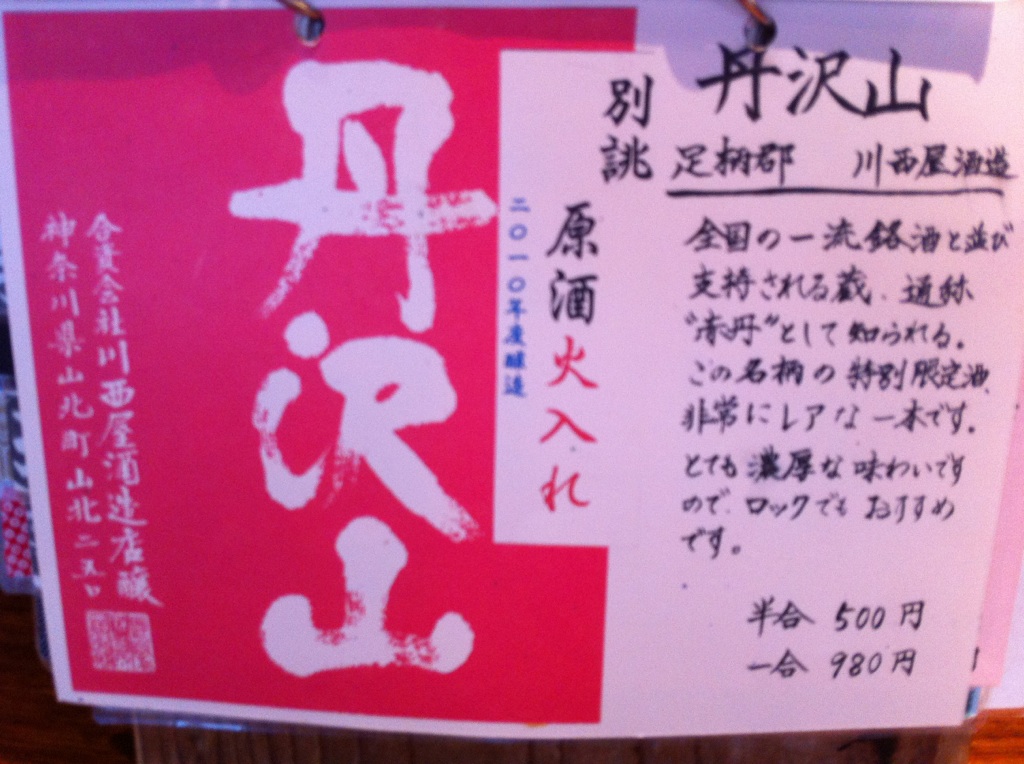 丹沢山
別誂
原酒火入れ
二〇一〇年度醸造
合資会社川西屋酒造店醸
神奈川県山北町山北二五〇
丹沢山
足柄郡 川西屋酒造
全国の一流銘酒と並び
支持される蔵、通称
"赤丹"として知られる。
この名柄の特別限定酒、
非常にレアな一本です。
とても濃厚な味わいです
ので、ロックでもおすすめ
です。
半合 500円
一合 980円